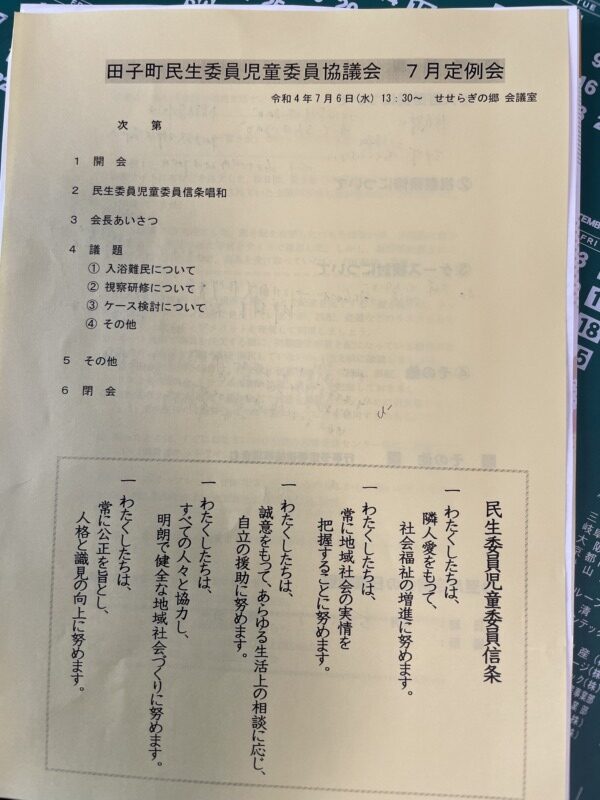 田子町民生委員児童委員協議会　７月定例会
令和４年７月６日(水) 13：30～　せせらぎの郷 会議室
次　第
１　開　会
２　民生委員児童委員信条唱和
３　会長あいさつ
４　議　題
① 入浴難民について
② 視察研修について
③ ケース検討について
④ その他
５　その他
６　閉　会
民生委員児童委員信条
一　わたくしたちは、
隣人愛をもって、
社会福祉の増進に努めます。
一　わたくしたちは、
常に地域社会の実情を
把握することに努めます。
一　わたくしたちは、
誠意をもって、あらゆる生活上の相談に応じ、
自立の援助に努めます。
一　わたくしたちは、
すべての人々と協力し、
明朗で健全な地域社会づくりに努めます。
一　わたくしたちは、
常に公正を旨とし、
人格と識見の向上に努めます。